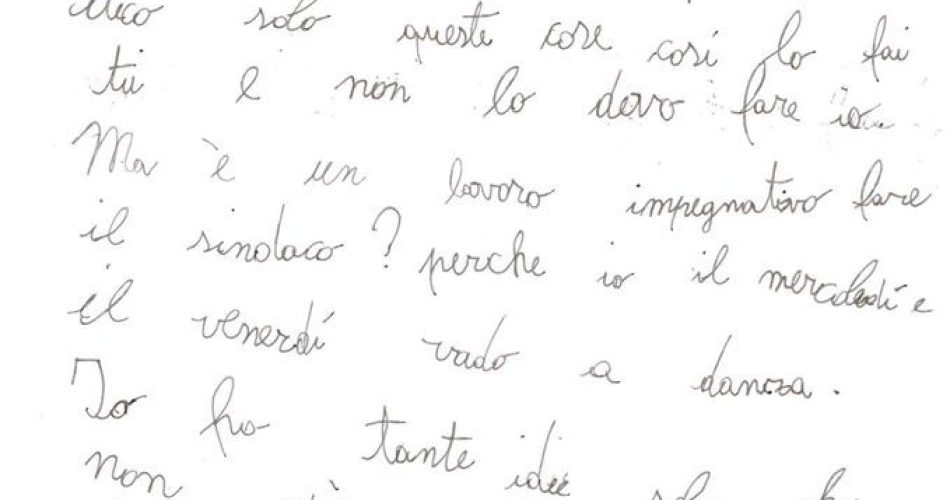 dico solo queste cose così lo fai
tu e non lo devo fare io
Ma è un lavoro impegnativo fare
il sindaco? perche io il mercoledí e
il venerdí vado a danza.
Io ho tante idee
non